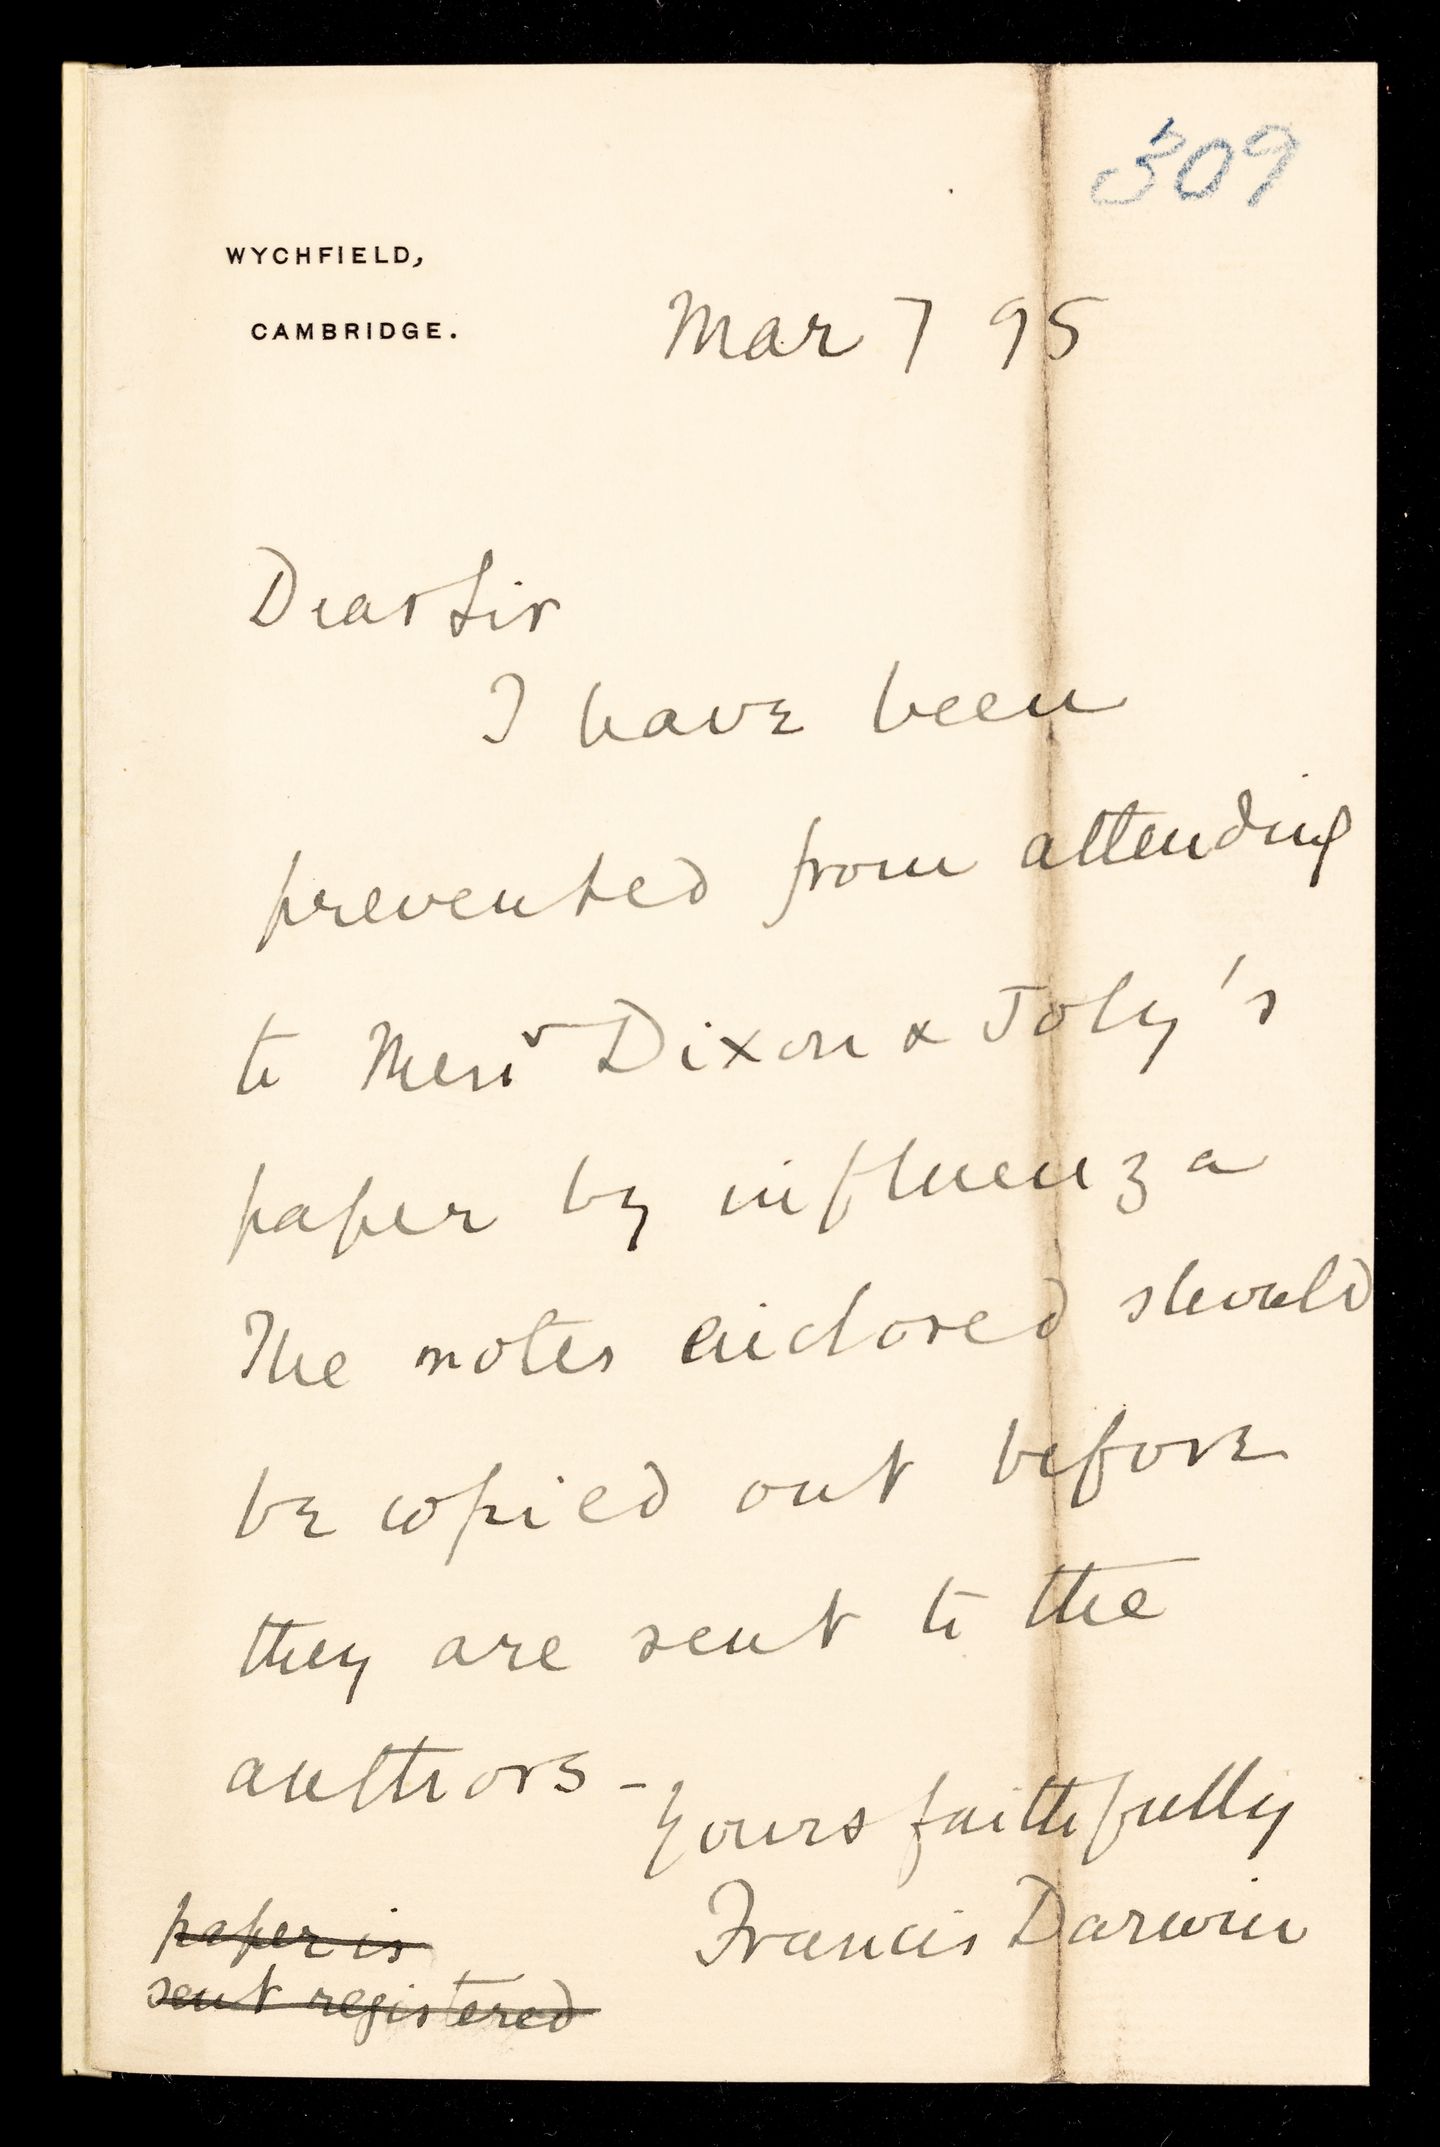 309
WYCHFIELD,
CAMBRIDGE.
Mar 7 95
Dear Sir
I have been
prevented from attending
to Messrs Dixon & Joly's
paper by influenza
The notes enclosed should
be copied out before
they are sent to the
authors –
Yours faithfully
Francis Darwin
paper is
sent registered